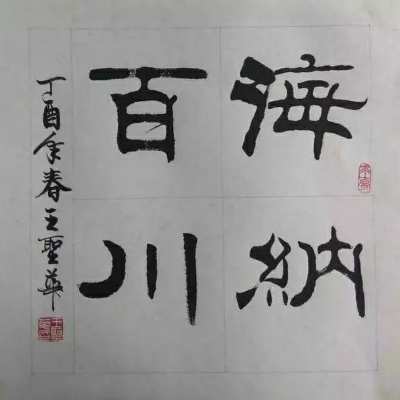 海納
百川
丁酉年春王聖華